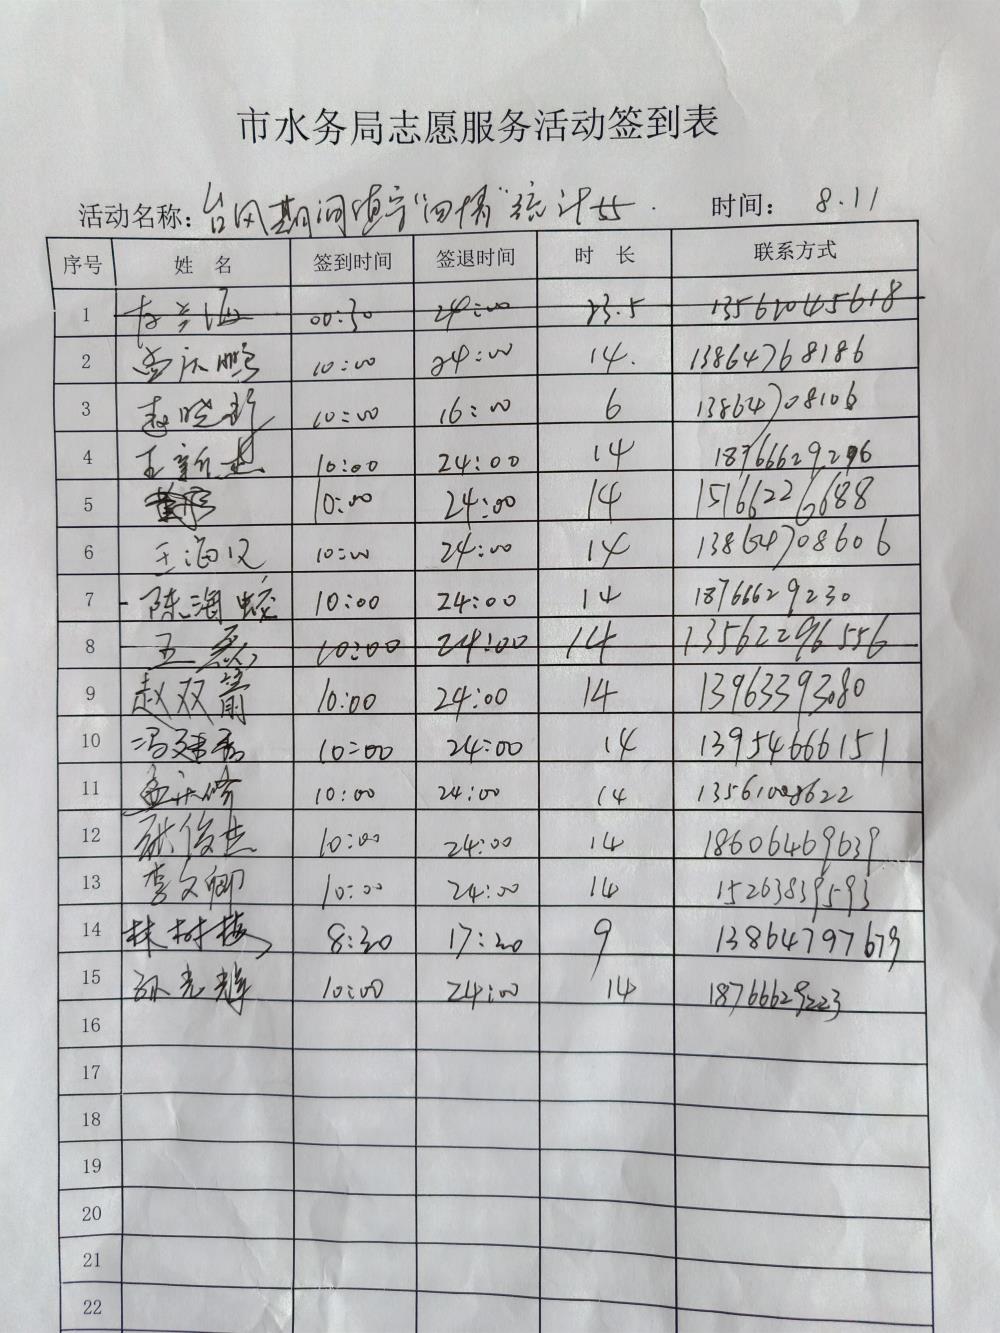 市水务局志愿服务活动签到表
活动名称: 台风期间值守"四情"统计 时间: 8.11
序号 姓名 签到时间 签退时间 时长 联系方式
1 00:30 24:00 23.5 13561045618
2 孟庆鹏 10:00 24:00 14. 13864768186
3 赵晓彩 10:00 16:00 6 13864708106
4 王新杰 10:00 24:00 14 18766629296
5 10:00 24:00 14 15166226688
6 王海汉 10:00 24:00 14 13864708606
7 陈海蛟 10:00 24:00 14 18766629230
8 王磊 10:00 24:00 14 13562296556
9 赵双箭 10:00 24:00 14 13963393080
10 冯建秀 10:00 24:00 14 13954666151
11 孟庆修 10:00 24:00 14 13561008622
12 张俊杰 10:00 24:00 14 18606469639
13 李文卿 10:00 24:00 14 15263839593
14 林树梅 8:30 17:30 9 13864797679
15 孙光辉 10:00 24:00 14 18766629223
16
17
18
19
20
21
22